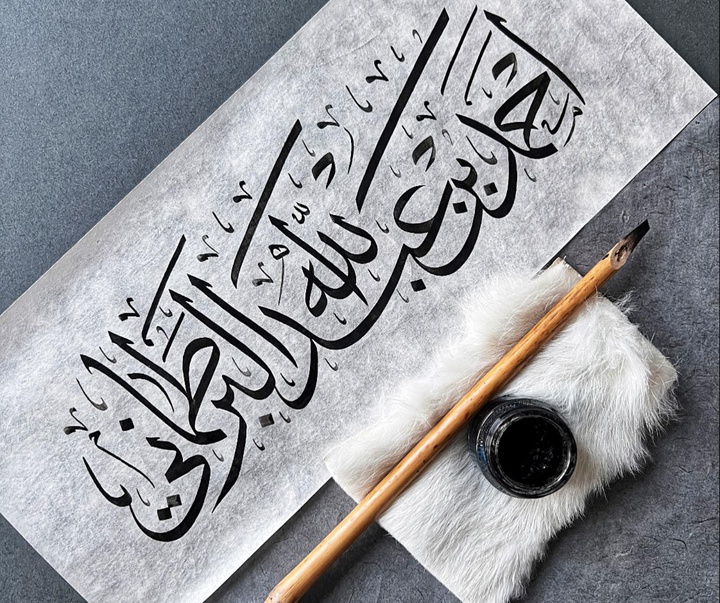 احمد بن عبد الله البرطماني